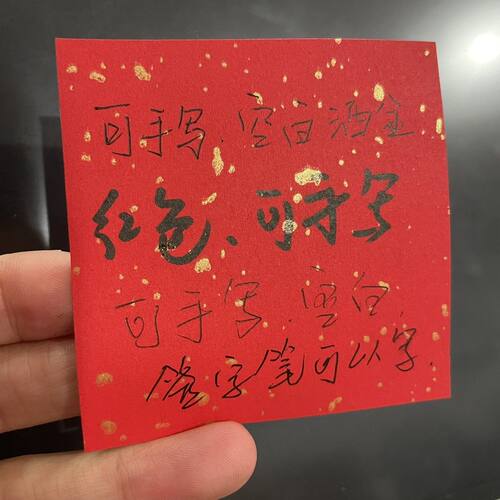 可手写.空白洒金
红色、可手写
可手写.空白,
签字笔可以字.